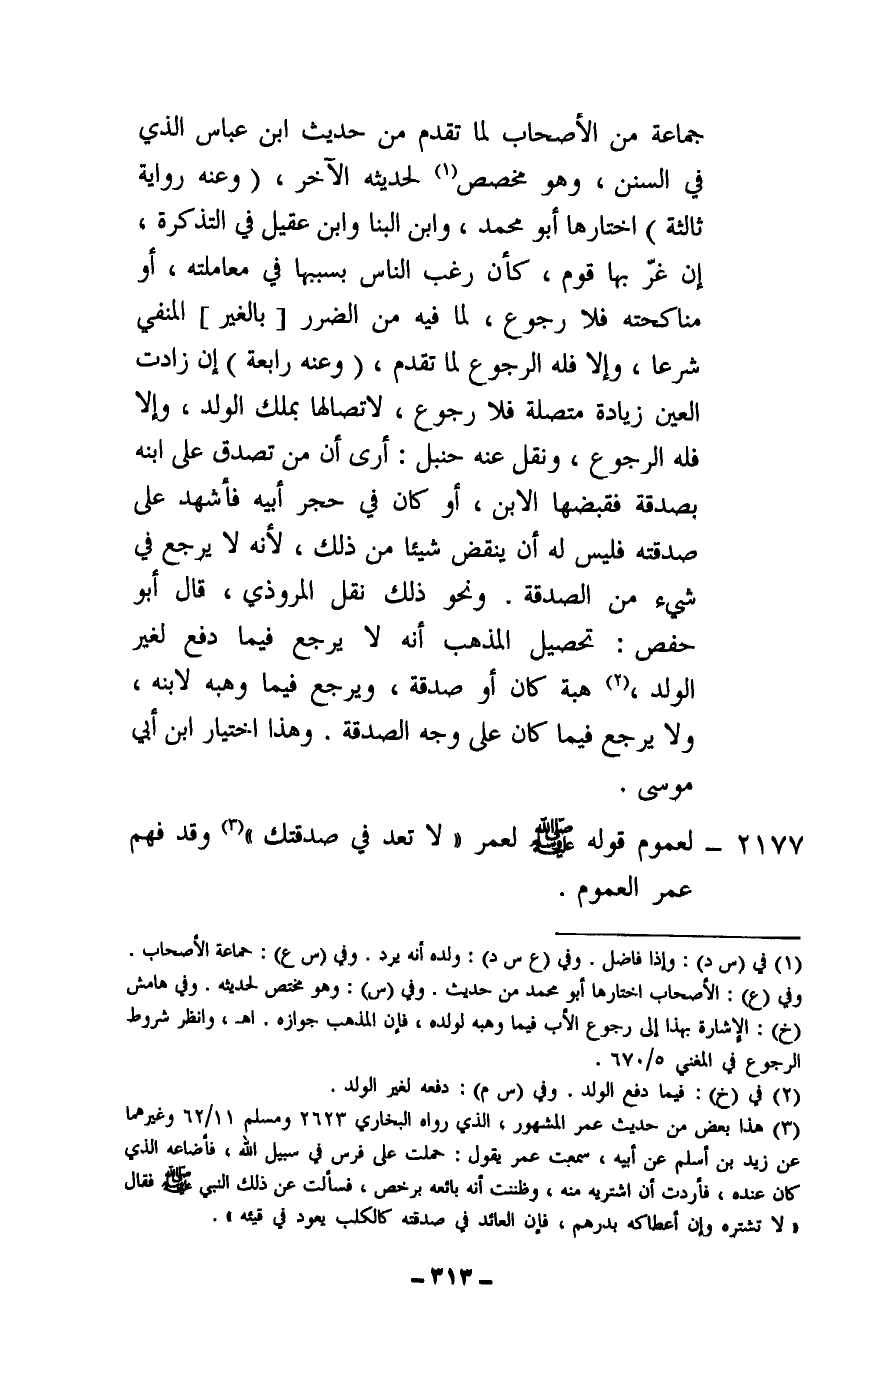 جماعة من الأصحاب لما تقدم من حديث ابن عباس الذي
في السنن ، وهو مخصص(١) لحديثه الآخر ، ( وعنه رواية
ثالثة ) اختارها أبو محمد ، وابن البنا وابن عقيل في التذكرة ،
إن غرّ بها قوم ، كأن رغب الناس بسببها في معاملته ، أو
مناكحته فلا رجوع ، لما فيه من الضرر [ بالغير ] المنفي
شرعا ، وإلا فله الرجوع لما تقدم ، ( وعنه رابعة ) إن زادت
العين زيادة متصلة فلا رجوع ، لاتصالها بملك الولد ، وإلا
فله الرجوع ، ونقل عنه حنبل : أرى أن من تصدق على ابنه
بصدقة فقبضها الابن ، أو كان في حجر أبيه فأشهد على
صدقته فليس له أن ينقض شيئا من ذلك ، لأنه لا يرجع في
شيء من الصدقة . ونحو ذلك نقل المروذي ، قال أبو
حفص : تحصيل المذهب أنه لا يرجع فيما دفع لغير
الولد ،(٢) هبة كان أو صدقة ، ويرجع فيما وهبه لابنه ،
ولا يرجع فيما كان على وجه الصدقة . وهذا اختيار ابن أبي
موسى .
٢١٧٧ – لعموم قوله ﷺ لعمر « لا تعد في صدقتك »(٣) وقد فهم
عمر العموم .
(١) في (س د) : وإذا فاضل . وفي (ع س د) : ولده أنه يرد . وفي (س ع) : جماعة الأصحاب .
وفي (ع) : الأصحاب اختارها أبو محمد من حديث . وفي (س) : وهو مختص لحديثه . وفي هامش
(خ) : الإشارة بهذا إلى رجوع الأب فيما وهبه لولده ، فإن المذهب جوازه . اهـ ، وانظر شروط
الرجوع في المغني ٦٧٠/٥ .
(٢) في (خ) : فيما دفع الولد . وفي (س م) : دفعه لغير الولد .
(٣) هذا بعض من حديث عمر المشهور ، الذي رواه البخاري ٢٦٢٣ ومسلم ٦٢/١١ وغيرهما
عن زيد بن أسلم عن أبيه ، سمعت عمر يقول : حملت على فرس في سبيل الله ، فأضاعه الذي
كان عنده ، فأردت أن اشتريه منه ، وظننت أنه بائعه برخص ، فسألت عن ذلك النبي ﷺ فقال
« لا تشتره وإن أعطاكه بدرهم ، فإن العائد في صدقته كالكلب يعود في قيئه » .
– ٣١٣ –